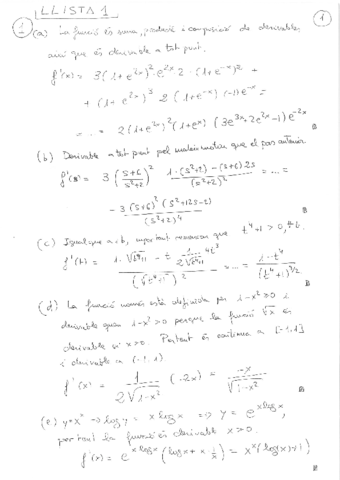 LLISTA 1
1
1 (a) La funció és suma, producte i composició de derivables
així que és derivable a tot punt.
f'(x) = 3(1+e^{2x})^2 e^{2x} 2 · (1+e^{-x})^2 +
+ (1+e^{2x})^3 2 (1+e^{-x}) (-1) e^{-x} =
= ... = 2(1+e^{2x})^2 (1+e^x) (3e^{3x} + 2e^{2x} - 1) e^{-2x}
(b) Derivable a tot punt pel mateix motiu que el pas anterior
f'(s) = 3 (\frac{s+6}{s^2+2})^2 \frac{1·(s^2+2) - (s+6) 2s}{(s^2+2)^2} = ... =
= \frac{-3(s+6)^2 (s^2+12s-2)}{(s^2+2)^4}
(c) Igual que a i b, important que t^4+1>0, ∀t.
f'(t) = \frac{1·\sqrt{t^4+1} - t \frac{1}{2\sqrt{t^4+1}} 4t^3}{(\sqrt{t^4+1})^2} = ... = \frac{1-t^4}{(t^4+1)^{3/2}}
(d) La funció només està definida per 1-x^2≥0 i
derivable quan 1-x^2>0 perquè la funció √x és
derivable si x>0. Per tant és contínua a [-1,1]
i derivable a (-1,1)
f'(x) = \frac{1}{2\sqrt{1-x^2}} (-2x) = \frac{-x}{\sqrt{1-x^2}}
(e) y=x^x → log y = x log x ⇒ y = e^{x log x},
per tant la funció és derivable x>0.
f'(x) = e^{x log x} (log x + x \frac{1}{x}) = x^x (log x + 1)